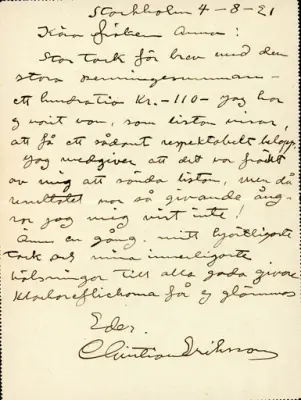 Stockholm 4-8-21
Kära fröken Anna:
Stor tack för brev med den
stora penningesumman –
ett hundratio Kr. – 110 – jag har
ej varit van, som listan visar,
att få ett sådant respektabelt belopp.
Jag medgiver att det var fräckt
av mig att sända listan, men då
resultatet var så givande ång-
rar jag mig visst inte!
Ännu en gång mitt hjertligaste
tack och mina innerligaste
hälsningar till alla goda givare
få ej glömmas
Eder
Christian Eriksson